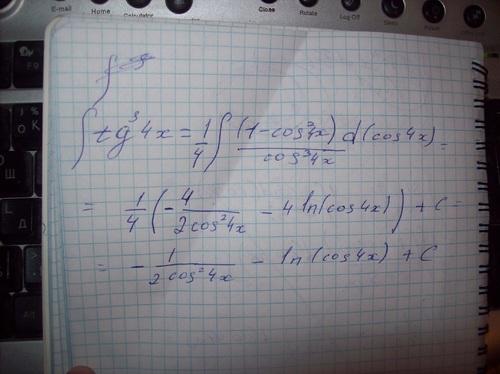 E-mail Home Calculator Close Rotate Log Off Sleep Power
F9
∫ tg³4x = 1/4 ∫ (1-cos²4x) d(cos4x) / cos³4x =
= 1/4 (- 4/2cos²4x - 4 ln(cos4x)) + C =
= - 1/2cos²4x - ln(cos4x) + C